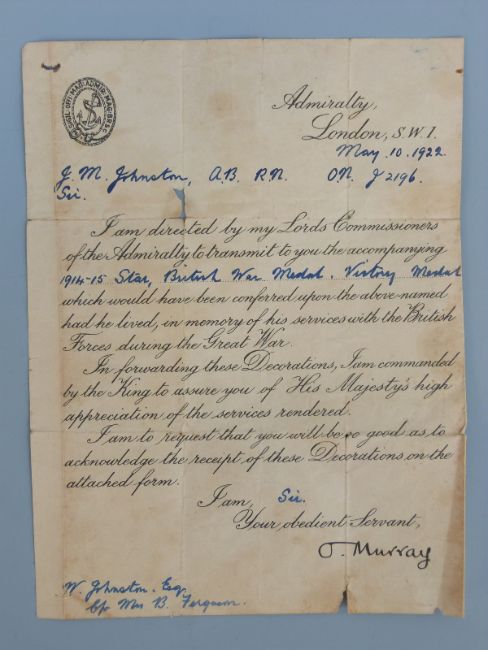 Admiralty,
London, S.W.1.
May. 10. 1922.
J. M. Johnston, A.B. R.N. O.N. J 2196.
Sir.
I am directed by my Lords Commissioners
of the Admiralty to transmit to you the accompanying
1914-15 Star, British War Medal. Victory Medal
which would have been conferred upon the above-named
had he lived, in memory of his services with the British
Forces during the Great War.
In forwarding these Decorations, I am commanded
by the King to assure you of His Majesty's high
appreciation of the services rendered.
I am to request that you will be so good as to
acknowledge the receipt of these Decorations on the
attached form.
I am, Sir.
Your obedient Servant,
O. Murray
W. Johnston. Esq.
c/o Mrs B. Ferguson.